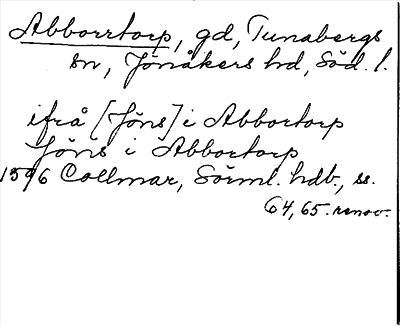 Abborrtorp, gd, Tunabergs
sn, Jönåkers hd, Söd. l.
ifrå [Jöns] i Abbortorp
Jöns i Abbortorp
1596 Collmar, Sörml. hdb., ss.
64, 65. renov.